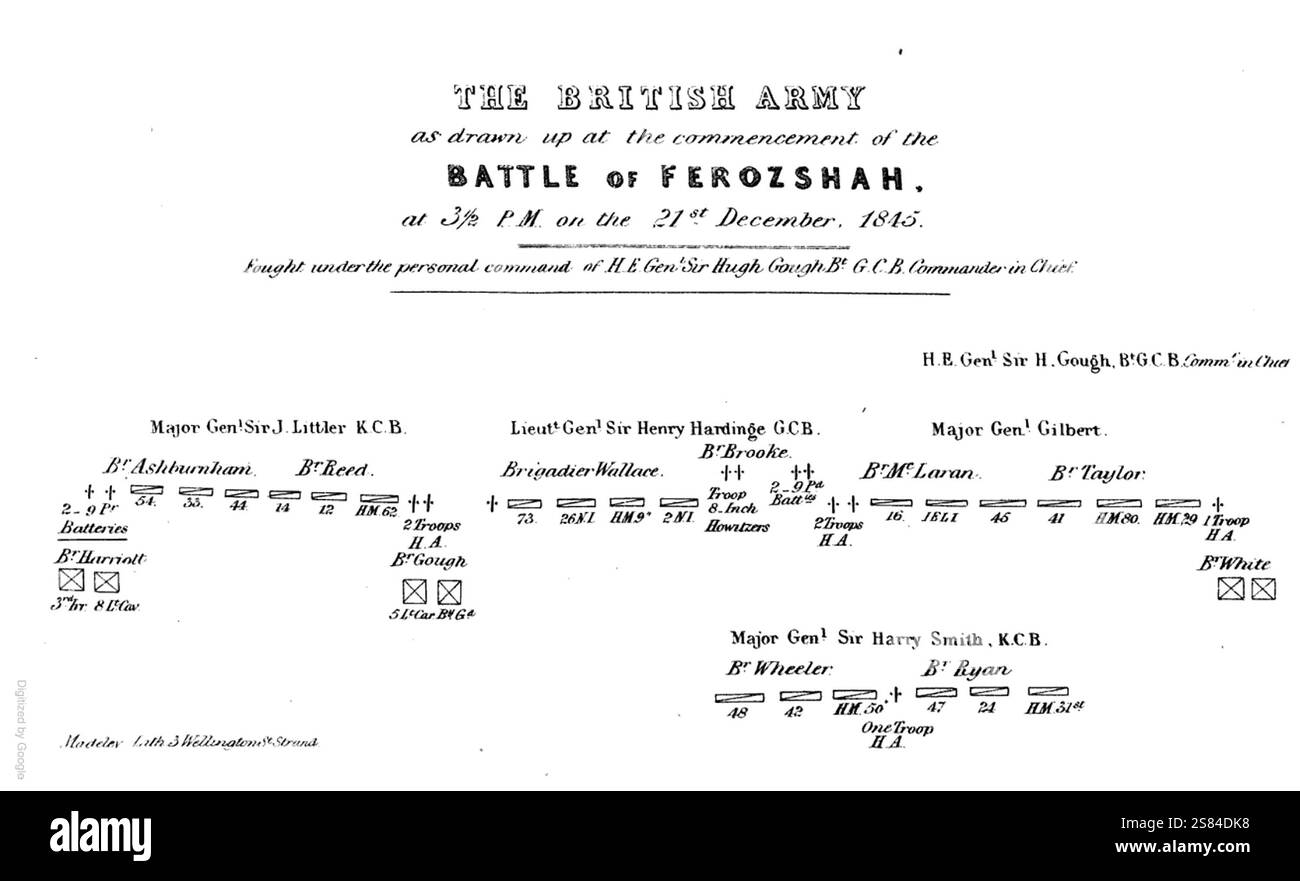 THE BRITISH ARMY
as drawn up at the commencement of the
BATTLE OF FEROZSHAH,
at 3½ P.M. on the 21st December, 1845.
Fought under the personal command of H.E. Genl Sir Hugh Gough Bt G.C.B. Commander in Chief.
H.E. Genl Sir H. Gough, Bt G.C.B. Commr in Chief
Major Genl Sir J. Littler K.C.B.
Br Ashburnham. Br Reed.
54. 33. 44 14 12 HM.62
2-9 Pr
Batteries
2 Troops
H.A.
Br Harriott
3rd 8 Lt Cav.
Br Gough
5 Lt Cav
Lieutt Genl Sir Henry Hardinge G.C.B.
Brigadier Wallace. Br Brooke.
73. 26 N.I. HM.9 2 N.I.
Troop
8-Inch
Howitzers
2-9 Pd
Batties
2 Troops
H.A.
Major Genl Gilbert.
Br Mc Laran. Br Taylor.
16. 45 41 HM.80. HM.29
1 Troop
H.A.
Br White
Major Genl Sir Harry Smith, K.C.B.
Br Wheeler. Br Ryan
48 42 HM.50 47 24 HM.31st
One Troop
H.A.
Lith 3 Wellington St Strand
Digitized by Google
alamy
alamy
Image ID: 2S84DK8
www.alamy.com